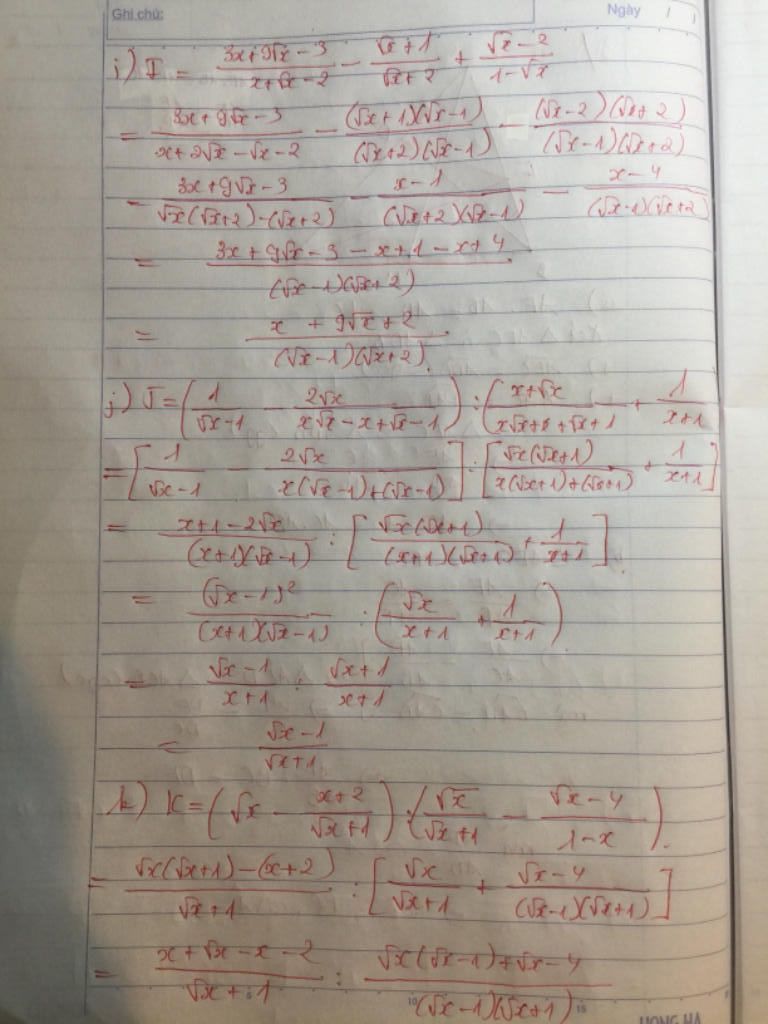 Ghi chú: Ngày / /
i) I = \frac{3x+9\sqrt{x}-3}{x+\sqrt{x}-2} - \frac{\sqrt{x}+1}{\sqrt{x}+2} + \frac{\sqrt{x}-2}{1-\sqrt{x}}
= \frac{3x+9\sqrt{x}-3}{x+2\sqrt{x}-\sqrt{x}-2} - \frac{(\sqrt{x}+1)(\sqrt{x}-1)}{(\sqrt{x}+2)(\sqrt{x}-1)} - \frac{(\sqrt{x}-2)(\sqrt{x}+2)}{(\sqrt{x}-1)(\sqrt{x}+2)}
= \frac{3x+9\sqrt{x}-3}{\sqrt{x}(\sqrt{x}+2)-(\sqrt{x}+2)} - \frac{x-1}{(\sqrt{x}+2)(\sqrt{x}-1)} - \frac{x-4}{(\sqrt{x}-1)(\sqrt{x}+2)}
= \frac{3x+9\sqrt{x}-3-x+1-x+4}{(\sqrt{x}-1)(\sqrt{x}+2)}
= \frac{x+9\sqrt{x}+2}{(\sqrt{x}-1)(\sqrt{x}+2)}.
j) J = \left(\frac{1}{\sqrt{x}-1} - \frac{2\sqrt{x}}{x\sqrt{x}-x+\sqrt{x}-1}\right) : \left(\frac{x+\sqrt{x}}{x\sqrt{x}+x+\sqrt{x}+1} + \frac{1}{x+1}
= \left[\frac{1}{\sqrt{x}-1} - \frac{2\sqrt{x}}{x(\sqrt{x}-1)+(\sqrt{x}-1)}\right] : \left[\frac{\sqrt{x}(\sqrt{x}+1)}{x(\sqrt{x}+1)+(\sqrt{x}+1)} + \frac{1}{x+1}\right]
= \frac{x+1-2\sqrt{x}}{(x+1)(\sqrt{x}-1)} : \left[\frac{\sqrt{x}(\sqrt{x}+1)}{(x+1)(\sqrt{x}+1)} + \frac{1}{x+1}\right].
= \frac{(\sqrt{x}-1)^2}{(x+1)(\sqrt{x}-1)} : \left(\frac{\sqrt{x}}{x+1} + \frac{1}{x+1}\right)
= \frac{\sqrt{x}-1}{x+1} : \frac{\sqrt{x}+1}{x+1}
= \frac{\sqrt{x}-1}{\sqrt{x}+1}.
k) K = \left(\sqrt{x} - \frac{x+2}{\sqrt{x}+1}\right) : \left(\frac{\sqrt{x}}{\sqrt{x}+1} - \frac{\sqrt{x}-4}{1-x}\right).
= \frac{\sqrt{x}(\sqrt{x}+1)-(x+2)}{\sqrt{x}+1} : \left[\frac{\sqrt{x}}{\sqrt{x}+1} + \frac{\sqrt{x}-4}{(\sqrt{x}-1)(\sqrt{x}+1)}\right]
= \frac{x+\sqrt{x}-x-2}{\sqrt{x}+1} : \frac{\sqrt{x}(\sqrt{x}-1)+\sqrt{x}-4}{(\sqrt{x}-1)(\sqrt{x}+1)}
5 10 15